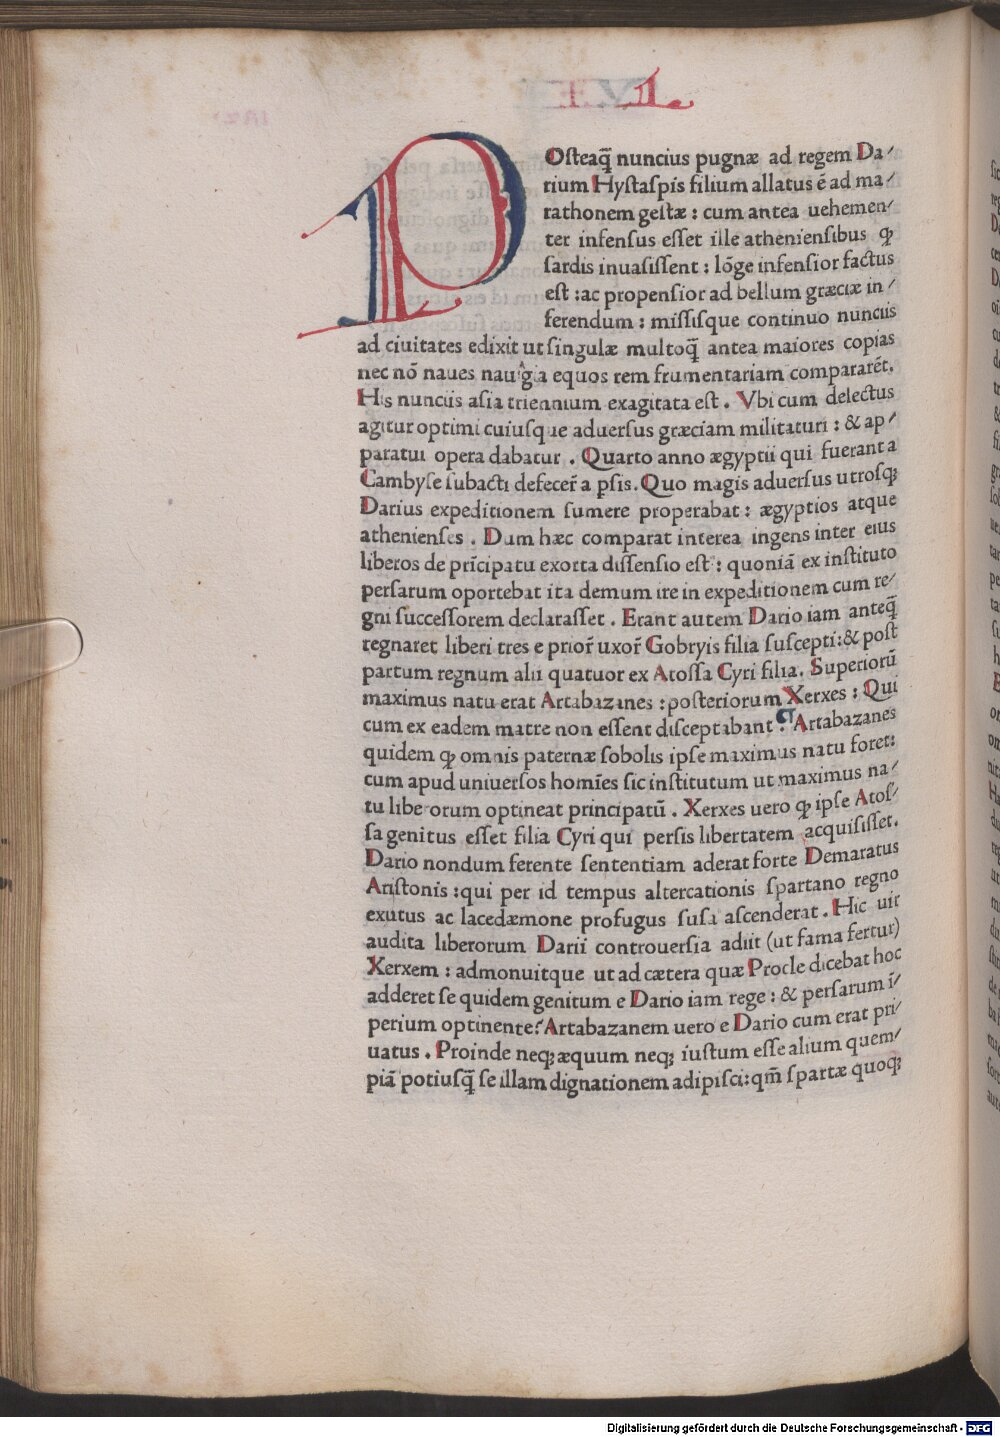 L
POſteaq̄ nuncius pugnæ ad regem Da⸗
rium Hyſtaſpis filium allatus ē ad ma⸗
rathonem geſtæ : cum antea uehemen⸗
ter infenſus eſſet ille athenienſibus ꝙ
ſardis inuaſiſſent : lōge infenſior factus
eſt : ac propenſior ad bellum græciæ in⸗
ferendum : miſſiſque continuo nunciis
ad ciuitates edixit ut ſingulæ multoq̄ antea maiores copias
nec nō naues nauigia equos rem frumentariam compararēt.
His nunciis aſia triennium exagitata eſt . Vbi cum delectus
agitur optimi cuiuſque aduerſus græciam militaturi : & ap⸗
paratui opera dabatur . Quarto anno ægyptii qui fuerant a
Cambyſe ſubacti defecer̄ a pſis. Quo magis aduerſus utroſqꝫ
Darius expeditionem ſumere properabat : ægyptios atque
athenienſes . Dum hæc comparat interea ingens inter eius
liberos de prīcipatu exorta diſſenſio eſt : quoniā ex inſtituto
perſarum oportebat ita demum ire in expeditionem cum re⸗
gni ſucceſſorem declaraſſet . Erant autem Dario iam anteq̄
regnaret liberi tres e prior̄ uxor̄ Gobryis filia ſuſcepti: & poſt
partum regnum alii quatuor ex Atoſſa Cyri filia. Superiorū
maximus natu erat Artabazanes : poſteriorum Xerxes : Qui
cum ex eadem matre non eſſent diſceptabant . ¶ Artabazanes
quidem ꝙ omnis paternæ ſobolis ipſe maximus natu foret:
cum apud uniuerſos homīes ſic inſtitutum ut maximus na⸗
tu liberorum optineat principatū . Xerxes uero ꝙ ipſe Atoſ⸗
ſa genitus eſſet filia Cyri qui perſis libertatem acquiſiſſet.
Dario nondum ferente ſententiam aderat forte Demaratus
Ariſtonis : qui per id tempus altercationis ſpartano regno
exutus ac lacedæmone profugus ſuſa aſcenderat . Hic uir
audita liberorum Darii controuerſia adiit (ut fama fertur)
Xerxem : admonuitque ut ad cætera quæ Procle dicebat hoc
adderet ſe quidem genitum e Dario iam rege : & perſarum ī⸗
perium optinente: Artabazanem uero e Dario cum erat pri⸗
uatus . Proinde neqꝫ æquum neqꝫ iuſtum eſſe alium quem⸗
piā potiuſq̄ ſe illam dignationem adipiſci: qm̄ ſpartæ quoqꝫ
Digitalisierung gefördert durch die Deutsche Forschungsgemeinschaft - DFG